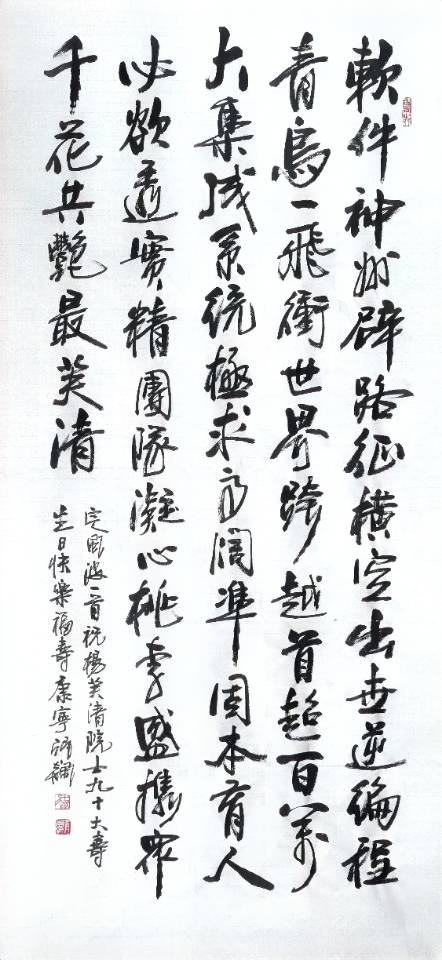 軟件神州辟路征橫空出世逆編程
青鳥一飛衝世界跨越首超百萬
大集成系統極求高闊準固本育人
必欲實精團隊凝心桃李盛攜眾
千花共艷最芙清
定風波一首祝楊芙清院士九十大壽
生日快樂福壽康寧